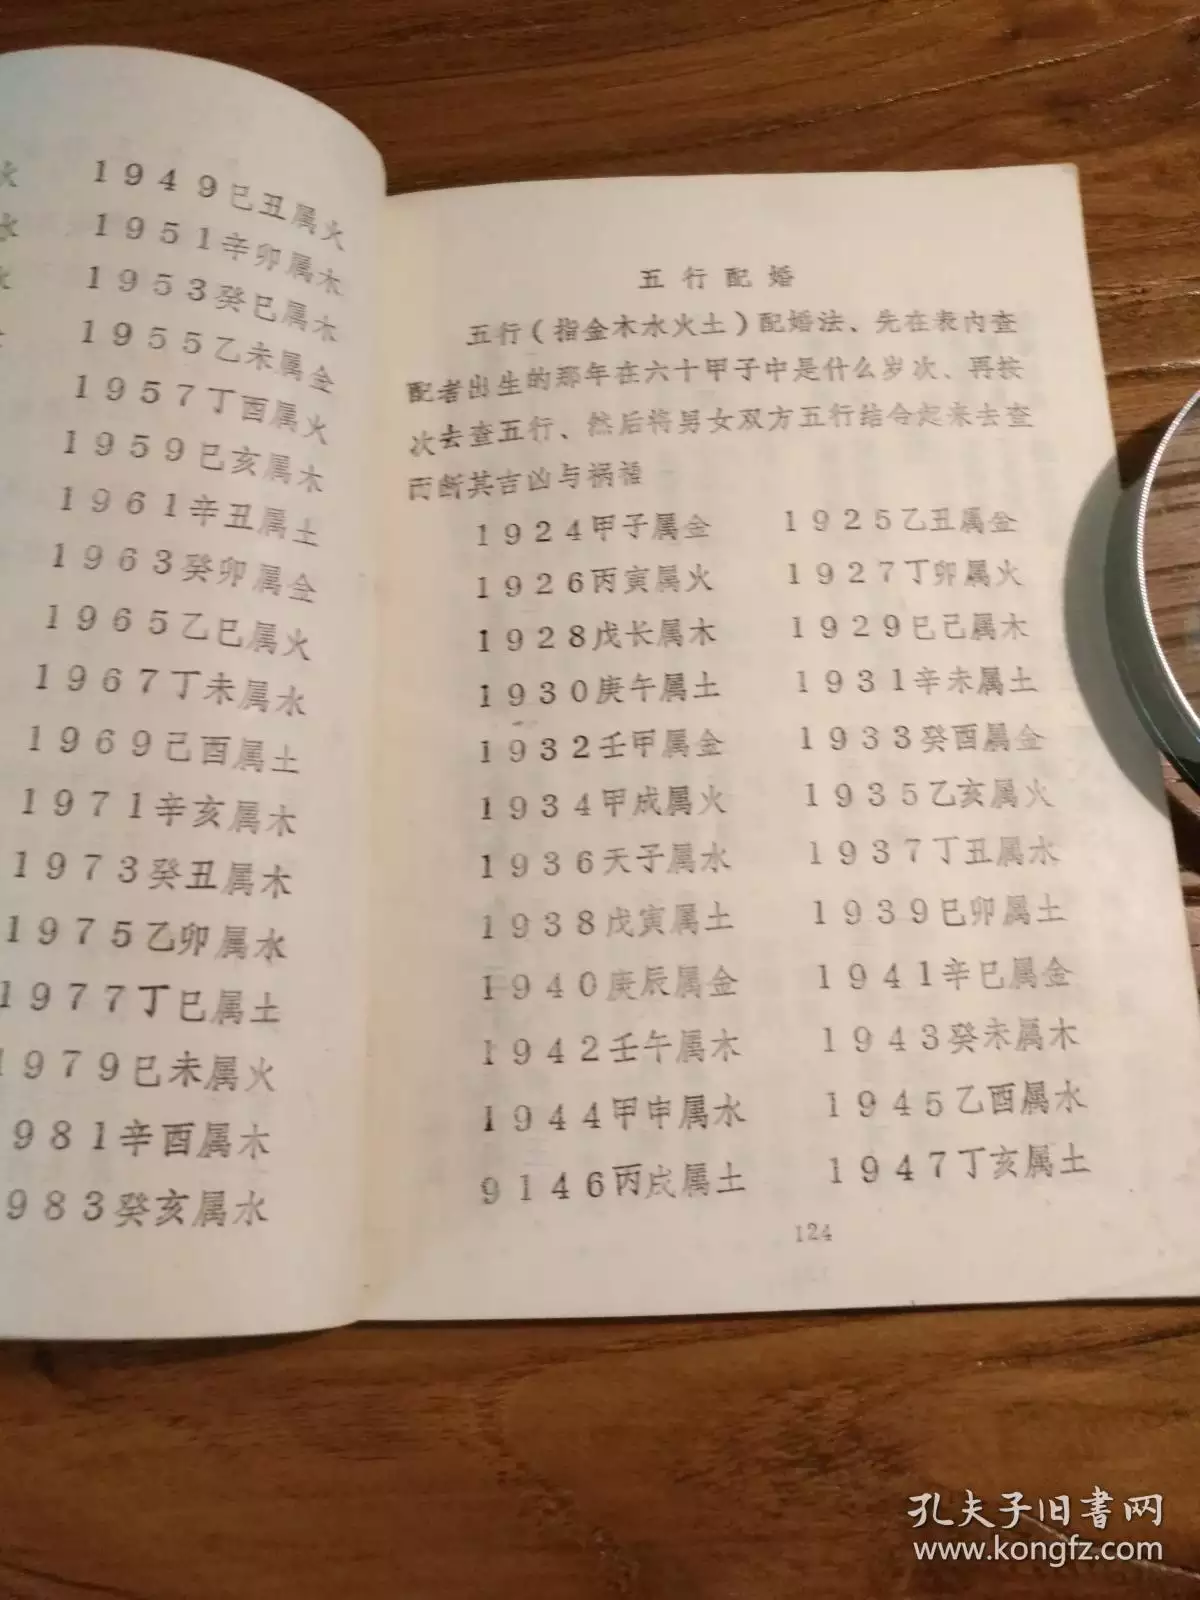 火
1949巳丑属火
水
1951辛卯属木
水
1953癸巳属木
1955乙未属金
1957丁酉属火
1959巳亥属木
1961辛丑属土
1963癸卯属金
1965乙巳属火
1967丁未属水
1969己酉属土
1971辛亥属木
1973癸丑属木
1975乙卯属水
1977丁巳属土
1979巳未属火
981辛酉属木
983癸亥属水
五行配婚
五行(指金木水火土)配婚法、先在表内查
配者出生的那年在六十甲子中是什么岁次、再按
次去查五行、然后将男女双方五行结合起来去查
而断其吉凶与祸福
1924甲子属金 1925乙丑属金
1926丙寅属火 1927丁卯属火
1928戊长属木 1929巳己属木
1930庚午属土 1931辛未属土
1932壬甲属金 1933癸酉属金
1934甲成属火 1935乙亥属火
1936天子属水 1937丁丑属水
1938戊寅属土 1939巳卯属土
1940庚辰属金 1941辛巳属金
1942壬午属木 1943癸未属木
1944甲申属水 1945乙酉属水
9146丙戌属土 1947丁亥属土
124
孔夫子旧书网
www.kongfz.com